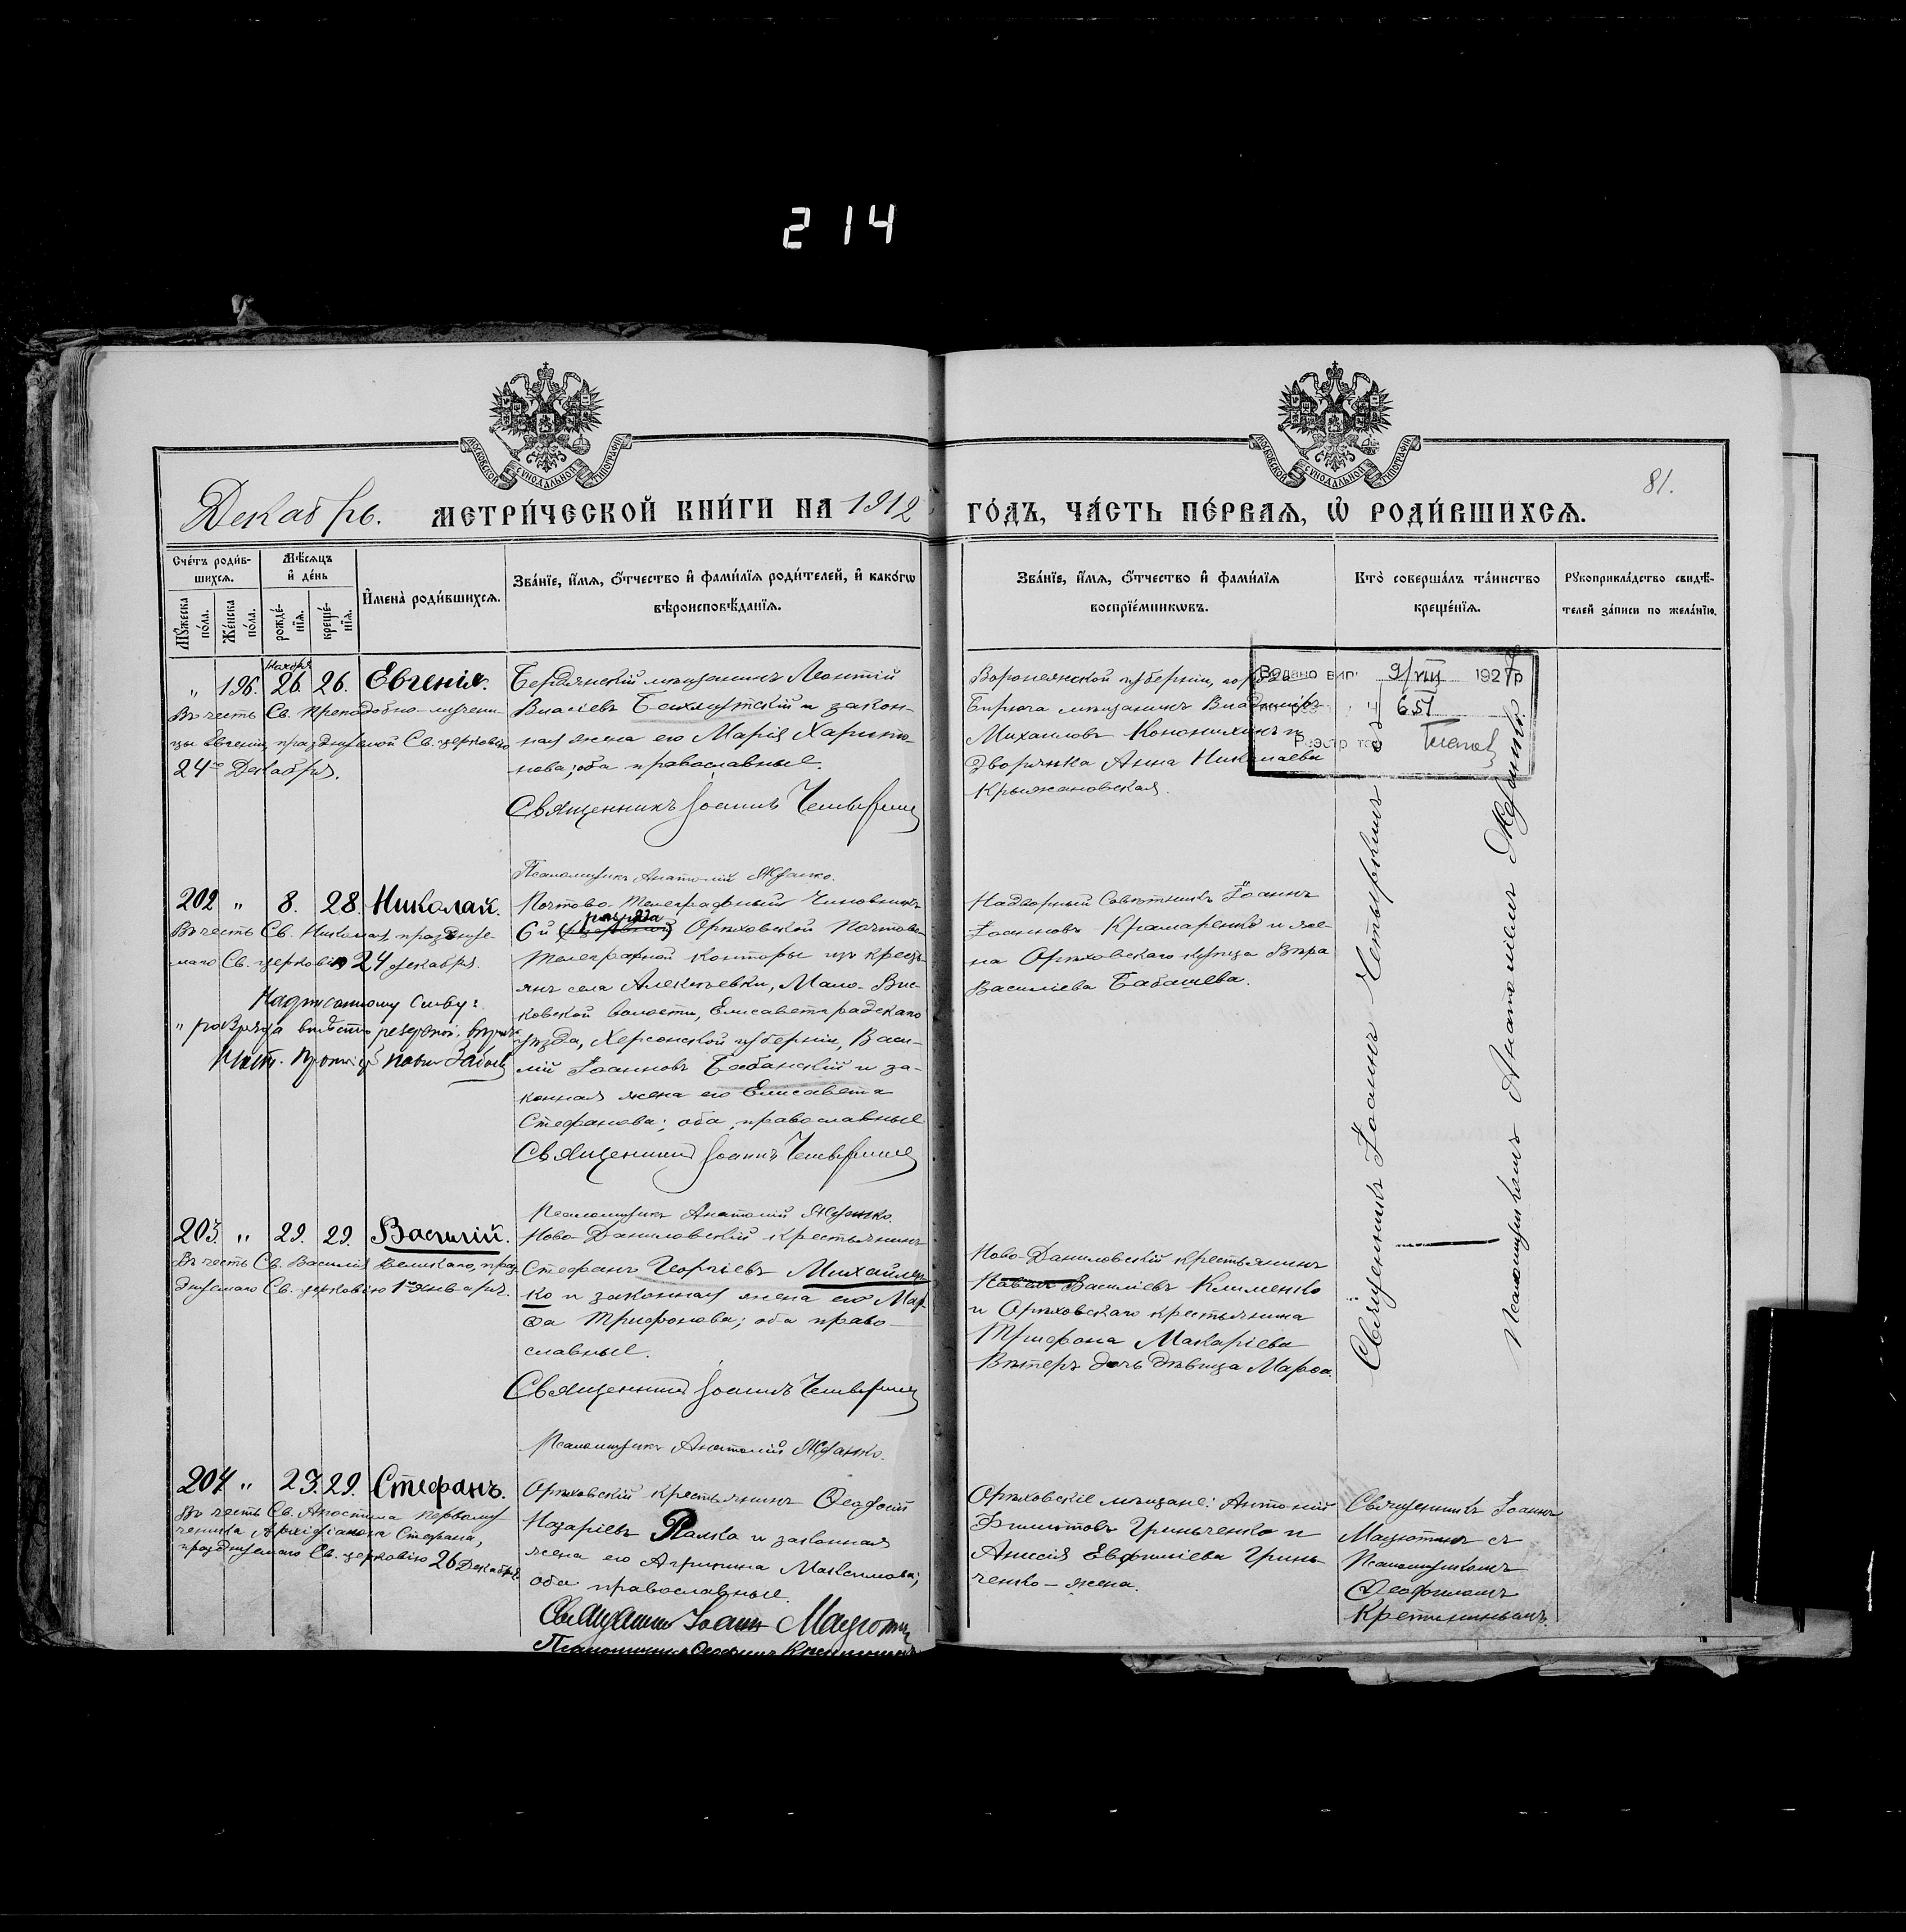 214
МОСКОВСКОЙ СУНОДАЛЬНОЙ ТИПОГРАФІИ
МОСКОВСКОЙ СУНОДАЛЬНОЙ ТИПОГРАФІИ
81.
Декабрь. МЕТРИ́ЧЕСКОЙ КНИ́ГИ НА 1912 ГО́ДЪ, ЧА́СТЬ ПЕ́РВАЯ, Ѡ҆ РОДИ́ВШИХСѦ.
Сче́тъ роди́в-
шихсѧ.
Мꙋ́жеска по́ла.
Же́нска по́ла.
Мѣ́сѧцъ
и҆ де́нь
рожде́-
нїѧ.
креще́-
нїѧ.
И҆мена̀ роди́вшихсѧ.
Зва́нїе, и҆́мѧ, ѻ҆́тчество и҆ фами́лїѧ роди́телей, и҆ како́гѡ
вѣроисповѣ́данїѧ.
Зва́нїе, и҆́мѧ, ѻ҆́тчество и҆ фами́лїѧ
воспрїе́мникѡвъ.
Кто̀ соверша́лъ та́инство
креще́нїѧ.
Рꙋкоприкла́дство свидѣ́-
телей за́писи по жела́нїю.
Ноября
" 196. 26. 26. Евгенія.
Въ честь Св. преподобно-мучени-
цы Евгеніи, празднуемой Св. церковію
24го Декабря.
Бердянскій мѣщанинъ Леонтій
и закон-
ная жена его Марія Харито-
нова; оба православные.
Священникъ Іоаннъ Четверкинъ
Псаломщикъ Анатолій
Воронежской губерніи, города
Бирюча мѣщанинъ Владиміръ
Михаиловъ Кононихинъ и
дворянка Анна Николаева
Крыжановская.
Видано вип. 9/VIII 192
651
Реэстр
202 " 8. 28. Николай.
Въ честь Св. Николая, праздлуе-
маго Св. церковію 24 декабря.
Надписанному слову:
"разряда вмѣсто резервной"
Почтово-Телеграфный Чиновникъ
разряда
6й Орѣховской Почтово-
Телеграфной Конторы изъ кресть-
янъ села Алексѣевки, Мало-Вис-
ковской волости, Елисаветградскаго
уѣзда, Херсонской губерніи, Васи-
лій Іоанновъ Бабанскій и за-
конная жена его Елисавета
Стефанова; оба православные
Священникъ Іоаннъ Четверкинъ
Псаломщикъ Анатолій
Надворный Совѣтникъ Іоаннъ
Іоанновъ Крамаренко и же-
на Орѣховскаго купца Вѣра
Василіева Бабашева.
Священникъ Іоаннъ Четыркинъ съ
псаломщикомъ Анатоліемъ
203. " 29. 29. Василій.
Въ честь Св. Василія Великаго, праз-
днуемаго Св. церковію 1го января.
Ново-Даниловскій крестьянинъ
Стефанъ Георгіевъ Михайлен-
ко и законная жена его Мар-
ѳа Трифонова; оба право-
славные.
Священникъ Іоаннъ Четверкинъ
Псаломщикъ Анатолій
Ново-Даниловскій крестьянинъ
Павелъ Василіевъ Клименко
и Орѣховскаго крестьянина
Трифона Макаріева
Вѣтеръ дочь дѣвица Марѳа.
204 " 23. 29. Стефанъ.
Въ честь Св. Апостола Первому-
ченика Архидіакона Стефана,
празднуемаго Св. церковію 26 Декабря
Орѣховскій крестьянинъ Ѳеодосій
Назаріевъ и законная
жена его Агрипина Максимова;
оба православные.
Священникъ Іоаннъ
Псаломщикъ Ѳеофилъ
Орѣховскіе мѣщане: Антоній
Филиповъ Гриньченко и
Анисія Евфиміева Гринь-
ченко – жена.
Священникъ Іоаннъ
съ
Псаломщикомъ
Ѳеофиломъ
Кретининымъ.